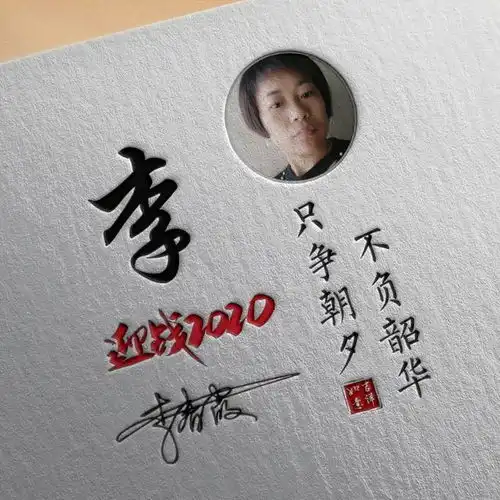 李
迎战2020
李春霞
只争朝夕
不负韶华